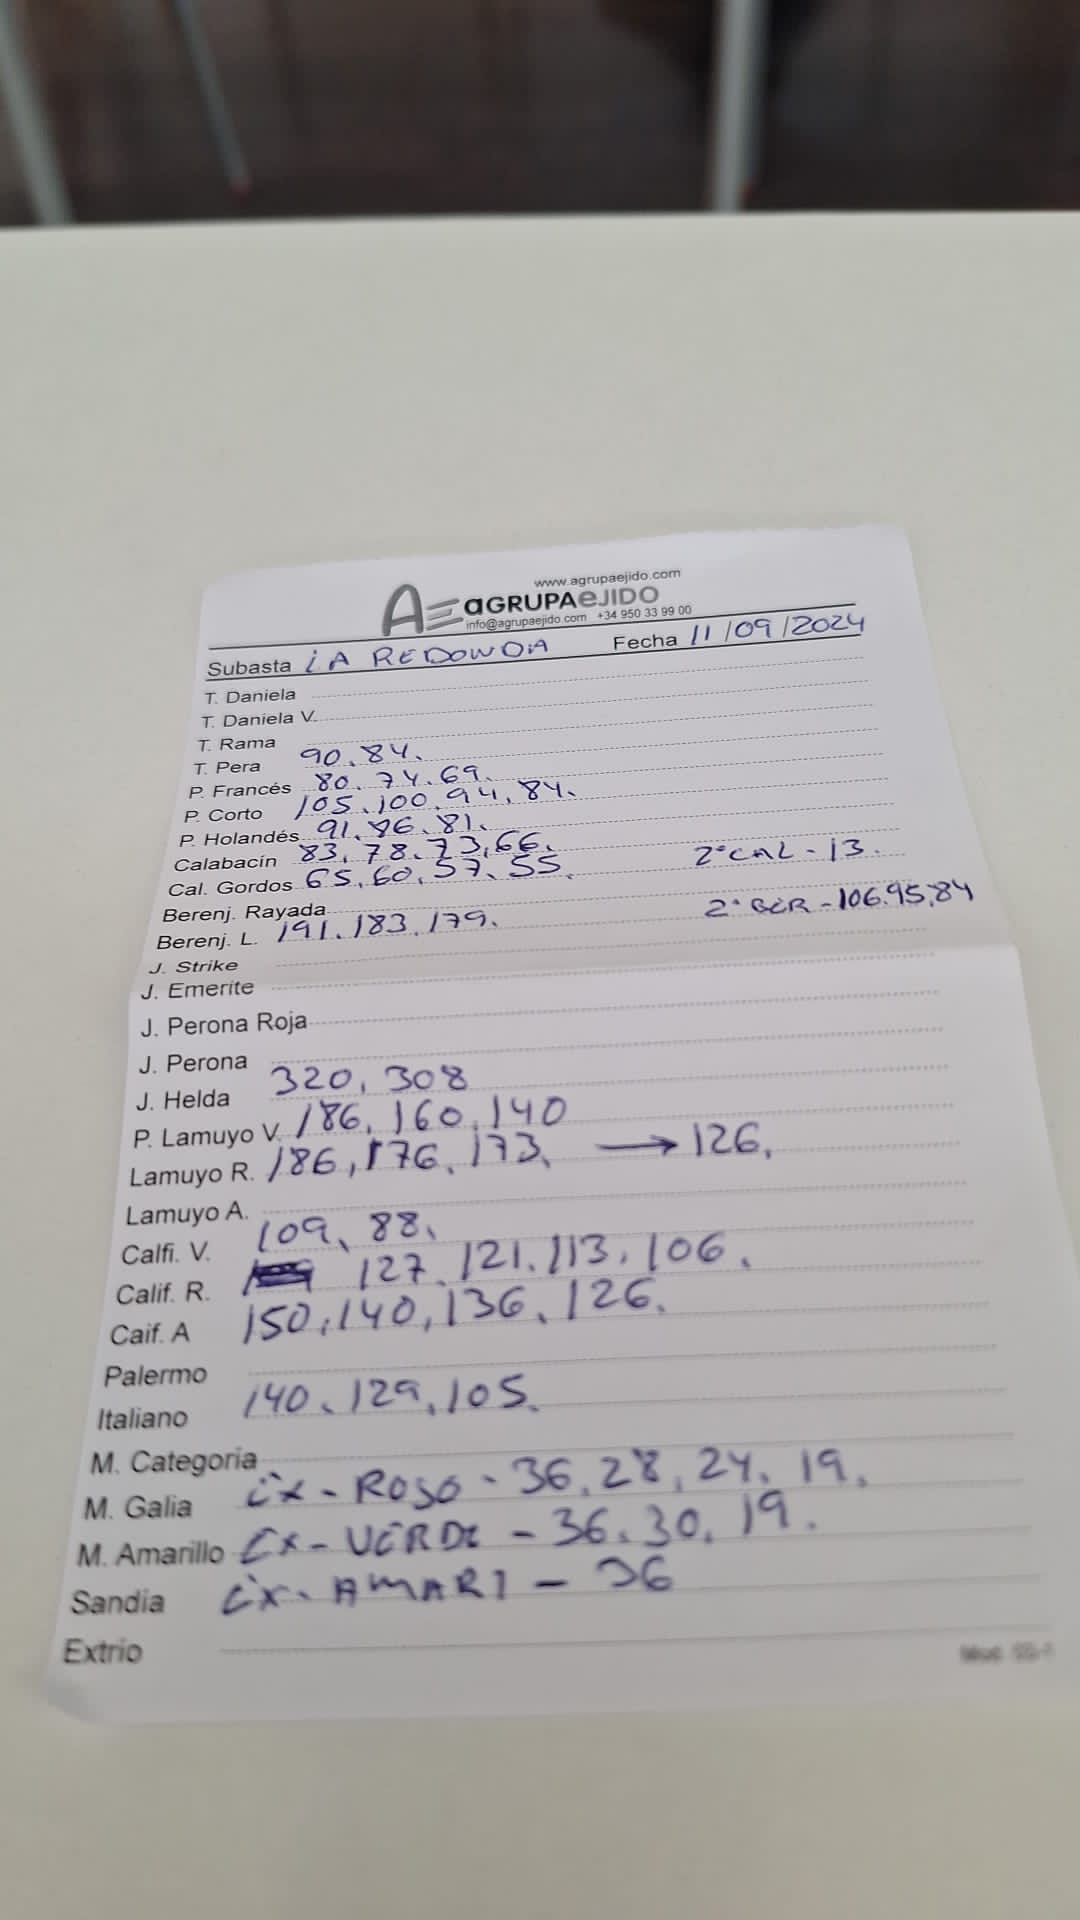 www.agrupaejido.com
AE aGRUPAeJIDO
info@agrupaejido.com +34 950 33 99 00
Subasta LA REDONDA Fecha 11/09/2024
T. Daniela
T. Daniela V.
T. Rama
T. Pera 90. 84.
P. Francés 80. 74. 69.
P. Corto 105. 100. 94. 84.
P. Holandés 91. 86. 81.
Calabacín 83. 78. 73. 66.
Cal. Gordos 65. 60. 57. 55. 2ª CAL - 13.
Berenj. Rayada
Berenj. L. 191. 183. 179. 2ª BER - 106. 95. 84
J. Strike
J. Emerite
J. Perona Roja
J. Perona
J. Helda 320, 308
P. Lamuyo V. 186, 160, 140
Lamuyo R. 186, 176. 173. → 126.
Lamuyo A.
Calfi. V. 109. 88.
Calif. R. 127. 121. 113. 106.
Caif. A 150. 140, 136. 126.
Palermo
Italiano 140. 129. 105.
M. Categoria
M. Galia Ex - ROJO - 36. 28, 24. 19.
M. Amarillo Ex - VERDE - 36. 30. 19.
Sandia Ex - AMARI - 36
Extrio